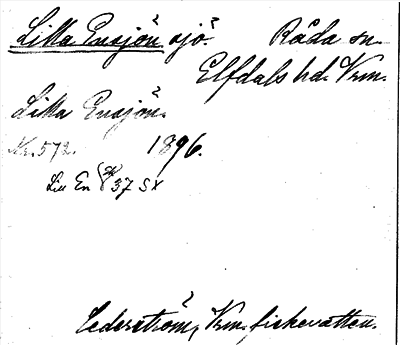 Lilla Ensjön sjö. Råda sn.
Elfdals hd. Vrm.
Lilla Ensjön.
Nr. 572. 1896.
Lill En 37 SX
Cederström, Vrm. fiskevatten.